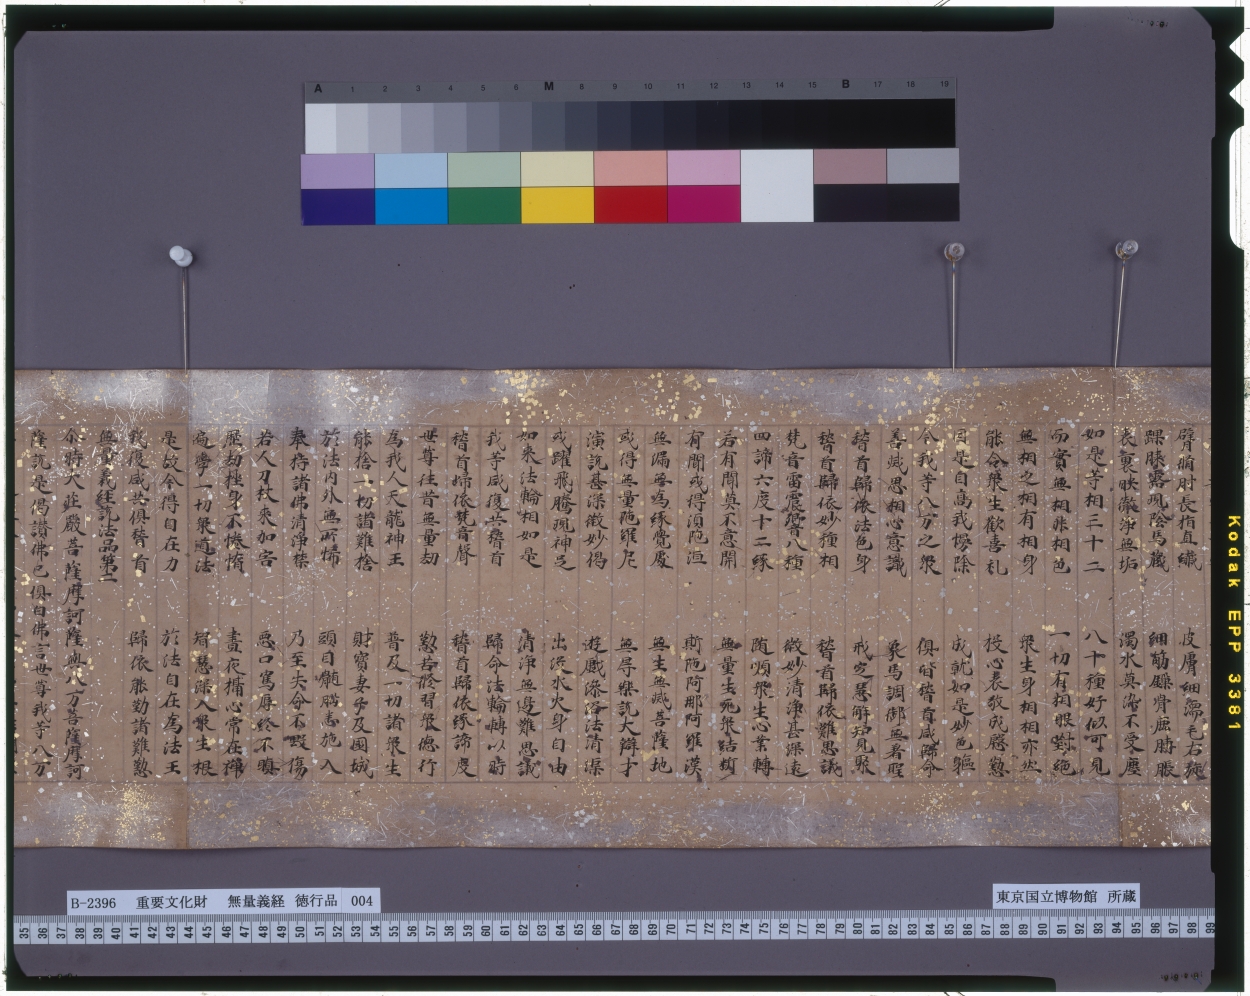 臂脩肘長指直纖　皮膚細濡毛右旋
踝膝露現陰馬藏　細筋鏁骨鹿膞脹
表裏映徹淨無垢　濁水莫染不受塵
如是等相三十二　八十種好似可見
而實無相非相色　一切有相眼對絶
無相之相有相身　衆生身相相亦然
能令衆生歡喜礼　投心表敬成慇懃
因是自高我慢除　成就如是妙色軀
今我等八万之衆　俱皆稽首咸歸命
善滅思相心意識　象馬調御無著聖
稽首歸依法色身　戒定慧解知見聚
稽首歸依妙種相　稽首歸依難思議
梵音雷震響八種　微妙清淨甚深遠
四諦六度十二緣　随順衆生心業轉
若有聞莫不意開　無量生死衆結斷
有聞或得須陀洹　斯陀阿那阿羅漢
無漏無爲緣覺處　無生無滅菩薩地
或得無量陀羅尼　無㝵樂説大辯才
演説甚深微妙偈　遊戲澡浴法清渠
或躍飛騰現神足　出没水火身自由
如来法輪相如是　清淨無邊難思議
我等咸復共稽首　歸命法輪轉以時
稽首歸依梵音聲　稽首歸依緣諦度
世尊往昔無量劫　懃苦修習衆德行
為我人天龍神王　普及一切諸衆生
能捨一切諸難捨　財寶妻子及國城
於法内外無所悋　頭目髓腦悉施人
奉持諸佛清淨禁　乃至失命不毀傷
若人刀杖来加害　惡口罵辱終不瞋
歷劫挫身不惓惰　晝夜攝心常在禪
遍學一切衆道法　智慧深入衆生根
是故今得自在力　於法自在為法王
我復咸共俱稽首　歸依能勤諸難懃
無量義經説法品第二
尒時大莊嚴菩薩摩訶薩與八万菩薩摩訶
薩説是偈讃佛已俱白佛言世尊我等八万
A 1 2 3 4 5 6 M 8 9 10 11 12 13 14 15 B 17 18 19
B-2396　重要文化財　無量義経　徳行品　004
東京国立博物館　所蔵
35 36 37 38 39 40 41 42 43 44 45 46 47 48 49 50 51 52 53 54 55 56 57 58 59 60 61 62 63 64 65 66 67 68 69 70 71 72 73 74 75 76 77 78 79 80 81 82 83 84 85 86 87 88 89 90 91 92 93 94 95 96 97 98 99
Kodak EPP 3381